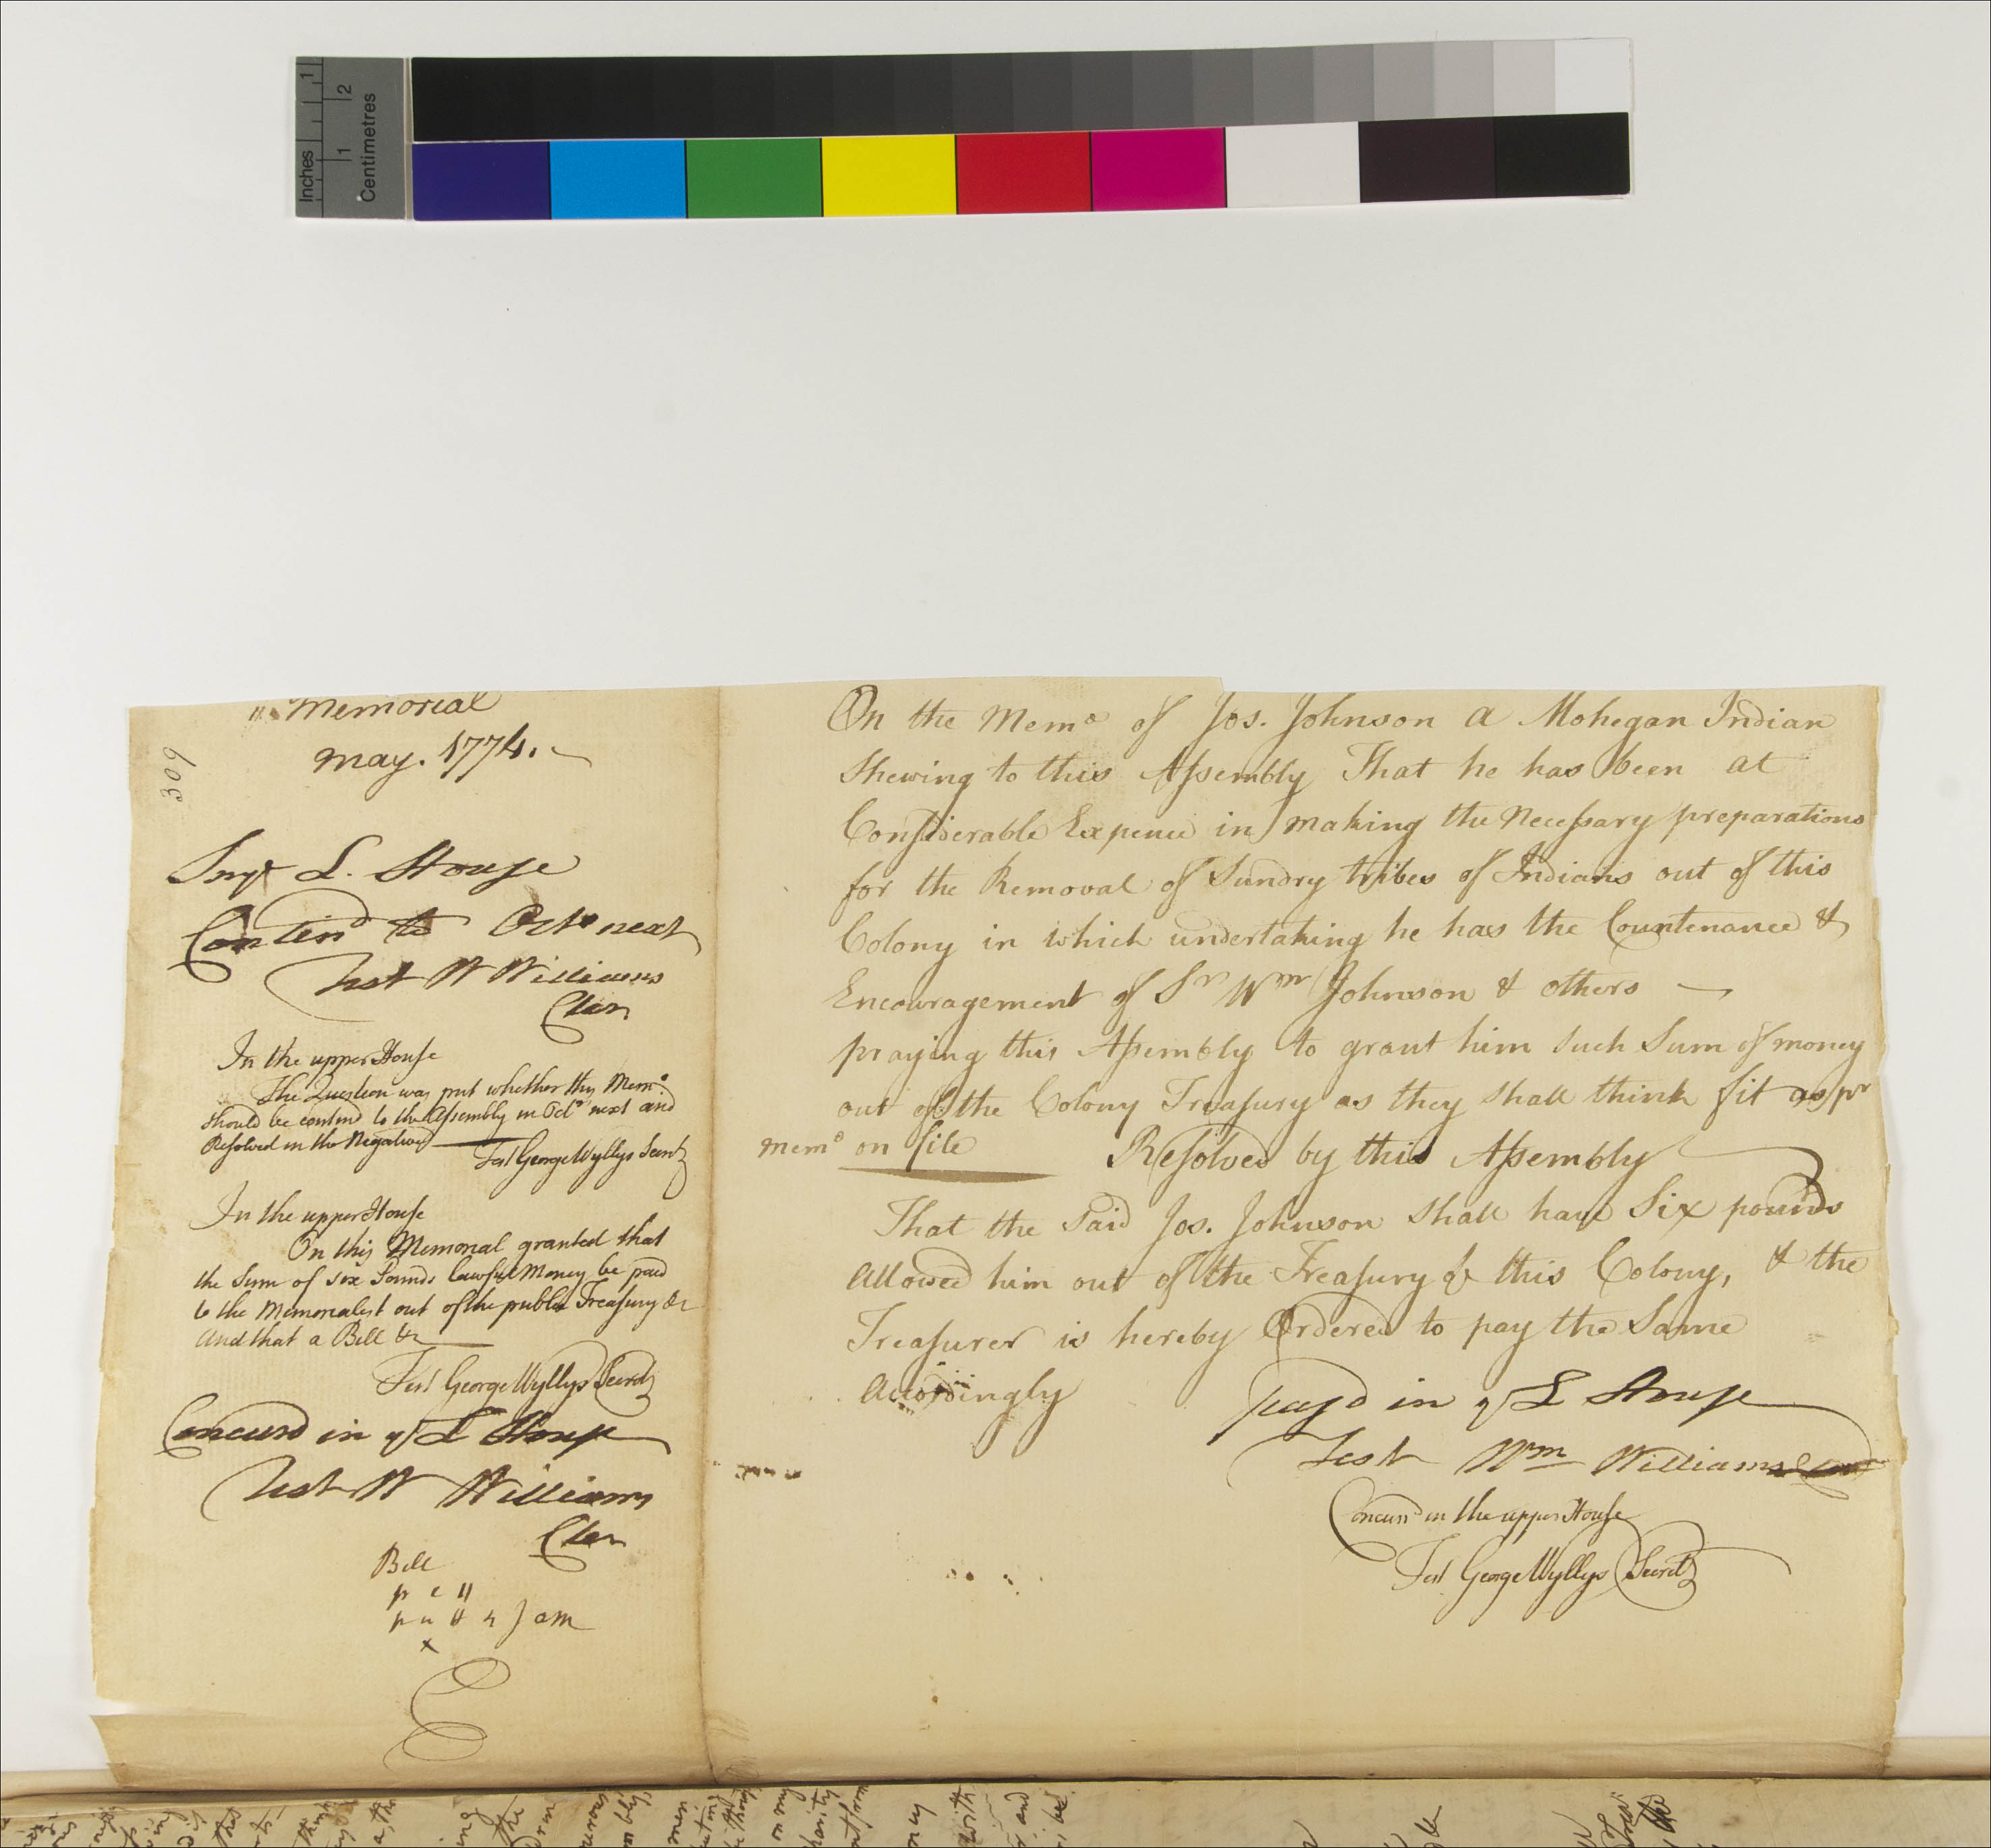 Inches
1
Centimetres
1
2
Memorial
May. 1774.
309
In ye L. House
Contind to Octo next
Test W Williams
Cler
In the upper House
The Question was put whether this Memo
should be contind to the Assembly in Octr next and
Resolved in the Negative
Test George Wyllys Secretz
In the upper House
On this Memorial granted that
the Sum of six Pounds lawful Money be paid
to the Memorialist out of the public Treasury &c
And that a Bill &c
Test George Wyllys Secretz
Concurd in ye L House
Test W Williams
Cler
Bill
On the Memo of Jos. Johnson a Mohegan Indian
Shewing to this Assembly That he has been at
Considerable Expence in making the Necessary preparations
for the Removal of Sundry tribes of Indians out of this
Colony in which undertaking he has the Countenance &
Encouragement of Sr Wm Johnson & others —
praying this Assembly to grant him Such Sum of money
out of the Colony Treasury as they shall think fit as pr
Memo on file Resolved by this Assembly
That the Said Jos. Johnson Shall have Six pounds
allowed him out of the Treasury of this Colony, & the
Treasurer is hereby Ordered to pay the Same
Accordingly
pass'd in ye L House
Test Wm Williams
Concurd in the upper House
Test George Wyllys Secretz